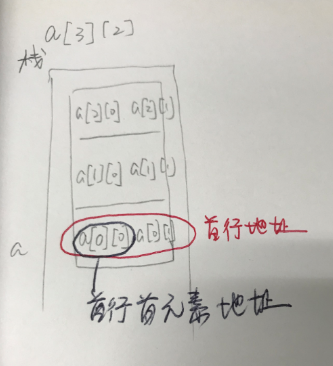 a[3][2]
栈
a[2][0] a[2][1]
a[1][0] a[1][1]
a[0][0] a[0][1]
首行地址
a
首行首元素地址